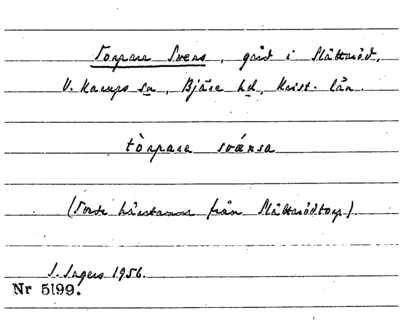 Torpare Svens, gård i Slättaröd,
V. Karups sn, Bjäre hd, Krist. län.
tòrpare svǽnsa
(Torde härstamma från Slättarödstorp).
S. Ingers 1956.
Nr 5199.